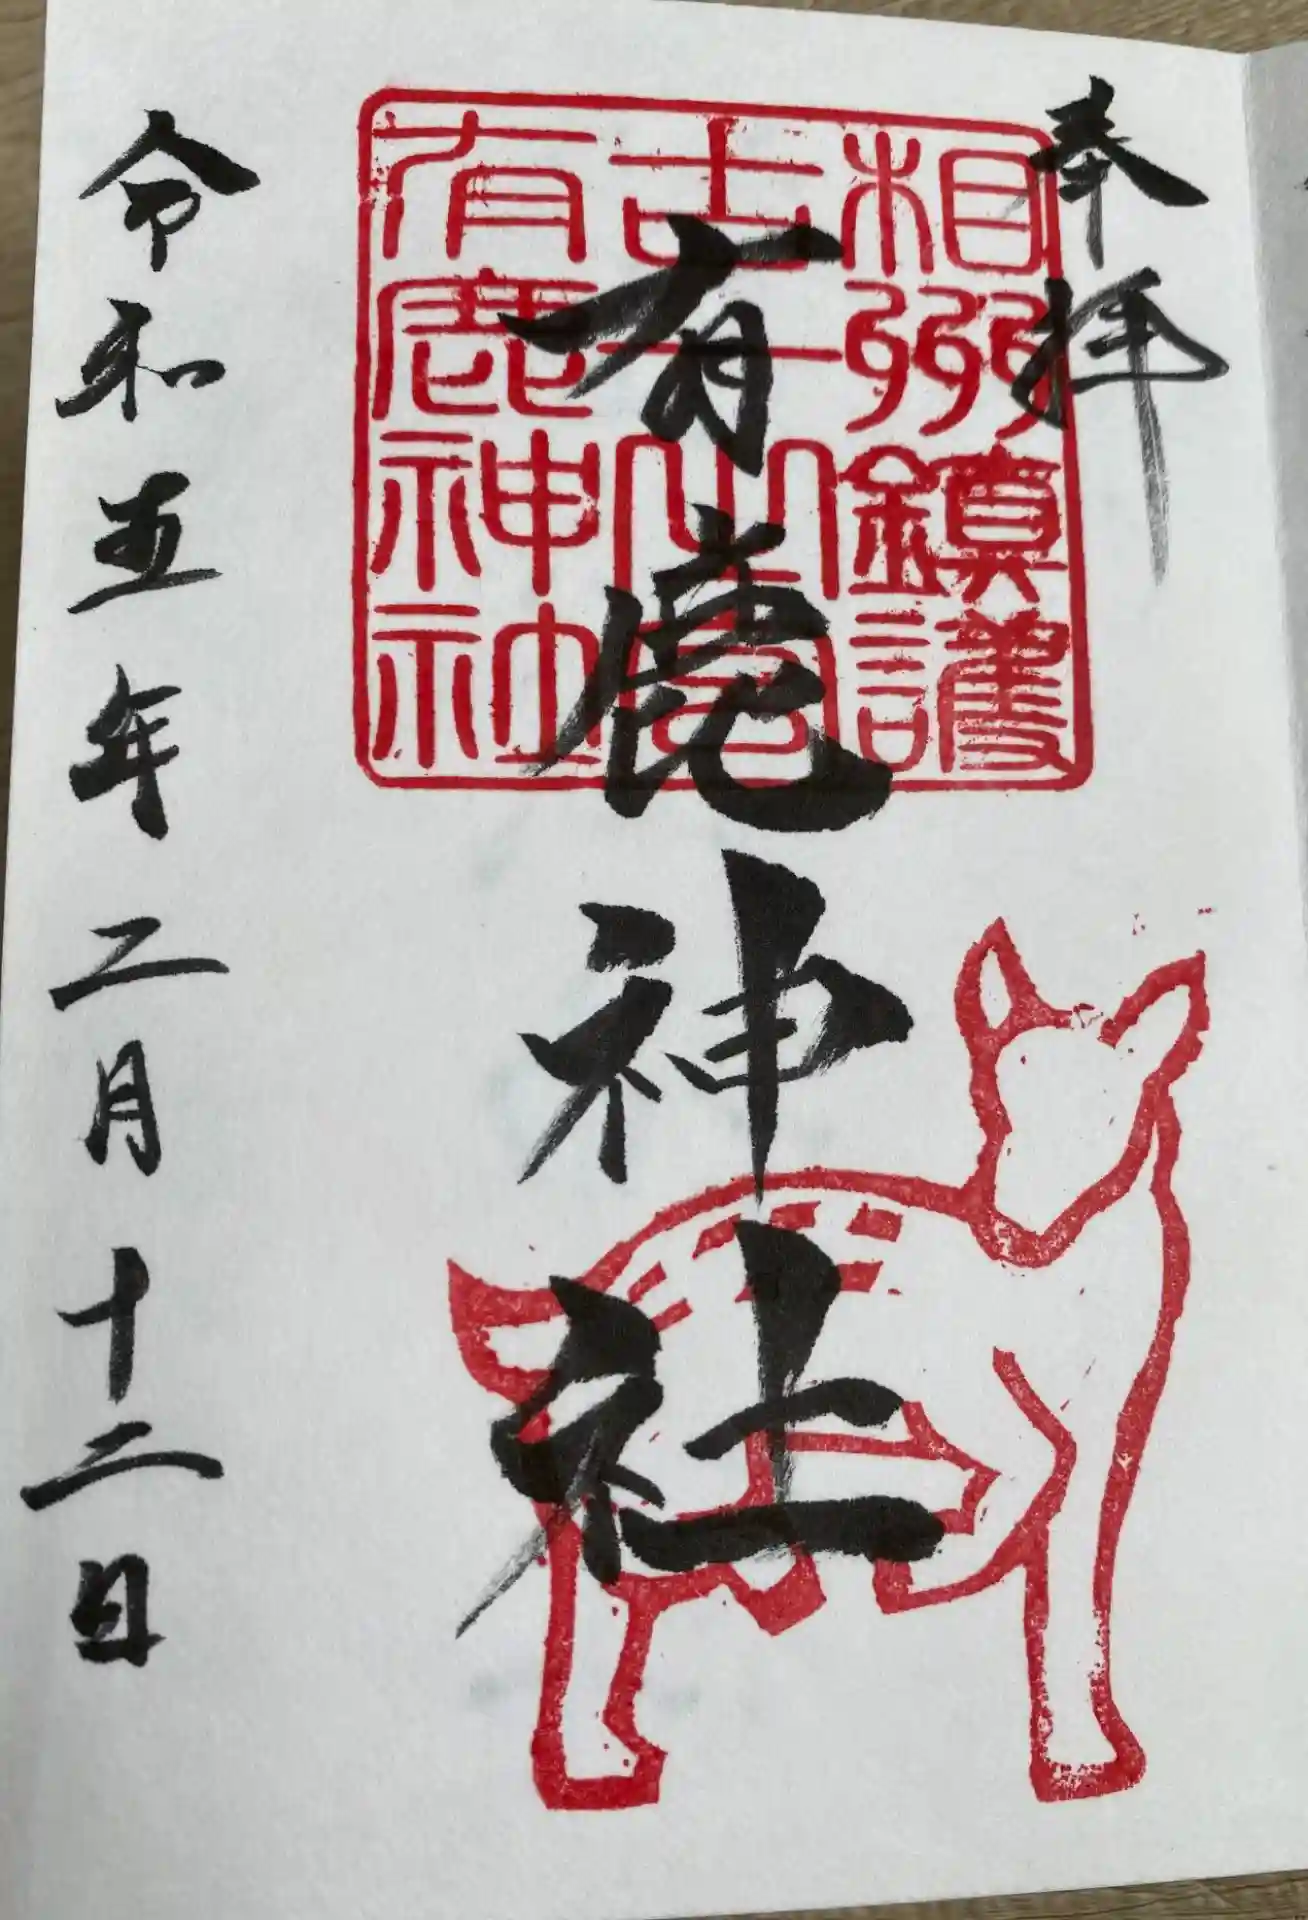 奉拝
相州鎮護
有鹿神社
有鹿神社
令和五年二月十二日